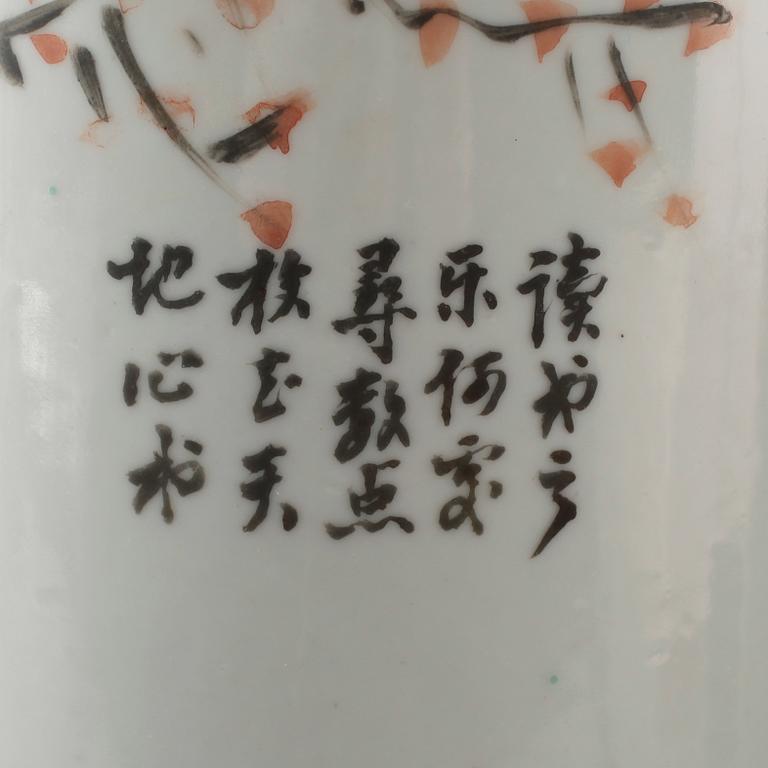 读书之
乐何处
尋数点
梅花天
地心